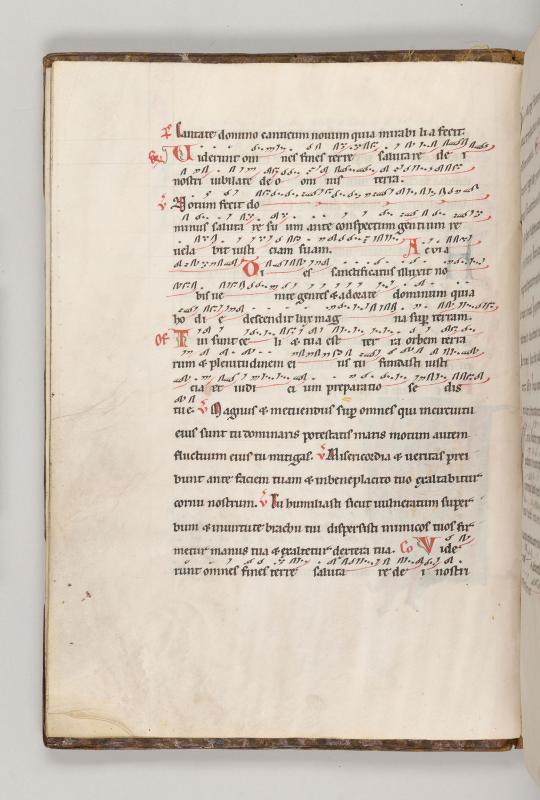 Cantate domino canticum nouum quia mirabi li a fecit.
Uiderunt om nes fines terre salutare de i
nostri iubilate deo om nis terra.
V Notum fecit do
minus saluta re su um ante conspectum gentium re
uela bit iusti ciam suam. Aeuia
Di es sanctificatus illuxit no
bis ue nite gentes & adorate dominum quia
ho di e descendit lux mag na sup terram.
Of Tui sunt ce li & tua est ter ra orbem terra
rum & plenitudinem ei us tu fundasti iusti
cia et iudi ci um preparatio se dis
tue. V Magnus & metuendus sup omnes qui in circuitu
eius sunt tu dominaris potestatis maris motum autem
fluctuum eius tu mitigas. V Misericordia & ueritas prei
bunt ante faciem tuam & in beneplacito tuo exaltabitur
cornu nostrum. V Tu humiliasti sicut uulneratum super
bum & in uirtute brachii tui dispersisti inimicos tuos fir
metur manus tua & exaltetur dextera tua. Co Vide
runt omnes fines terre saluta re de i nostri